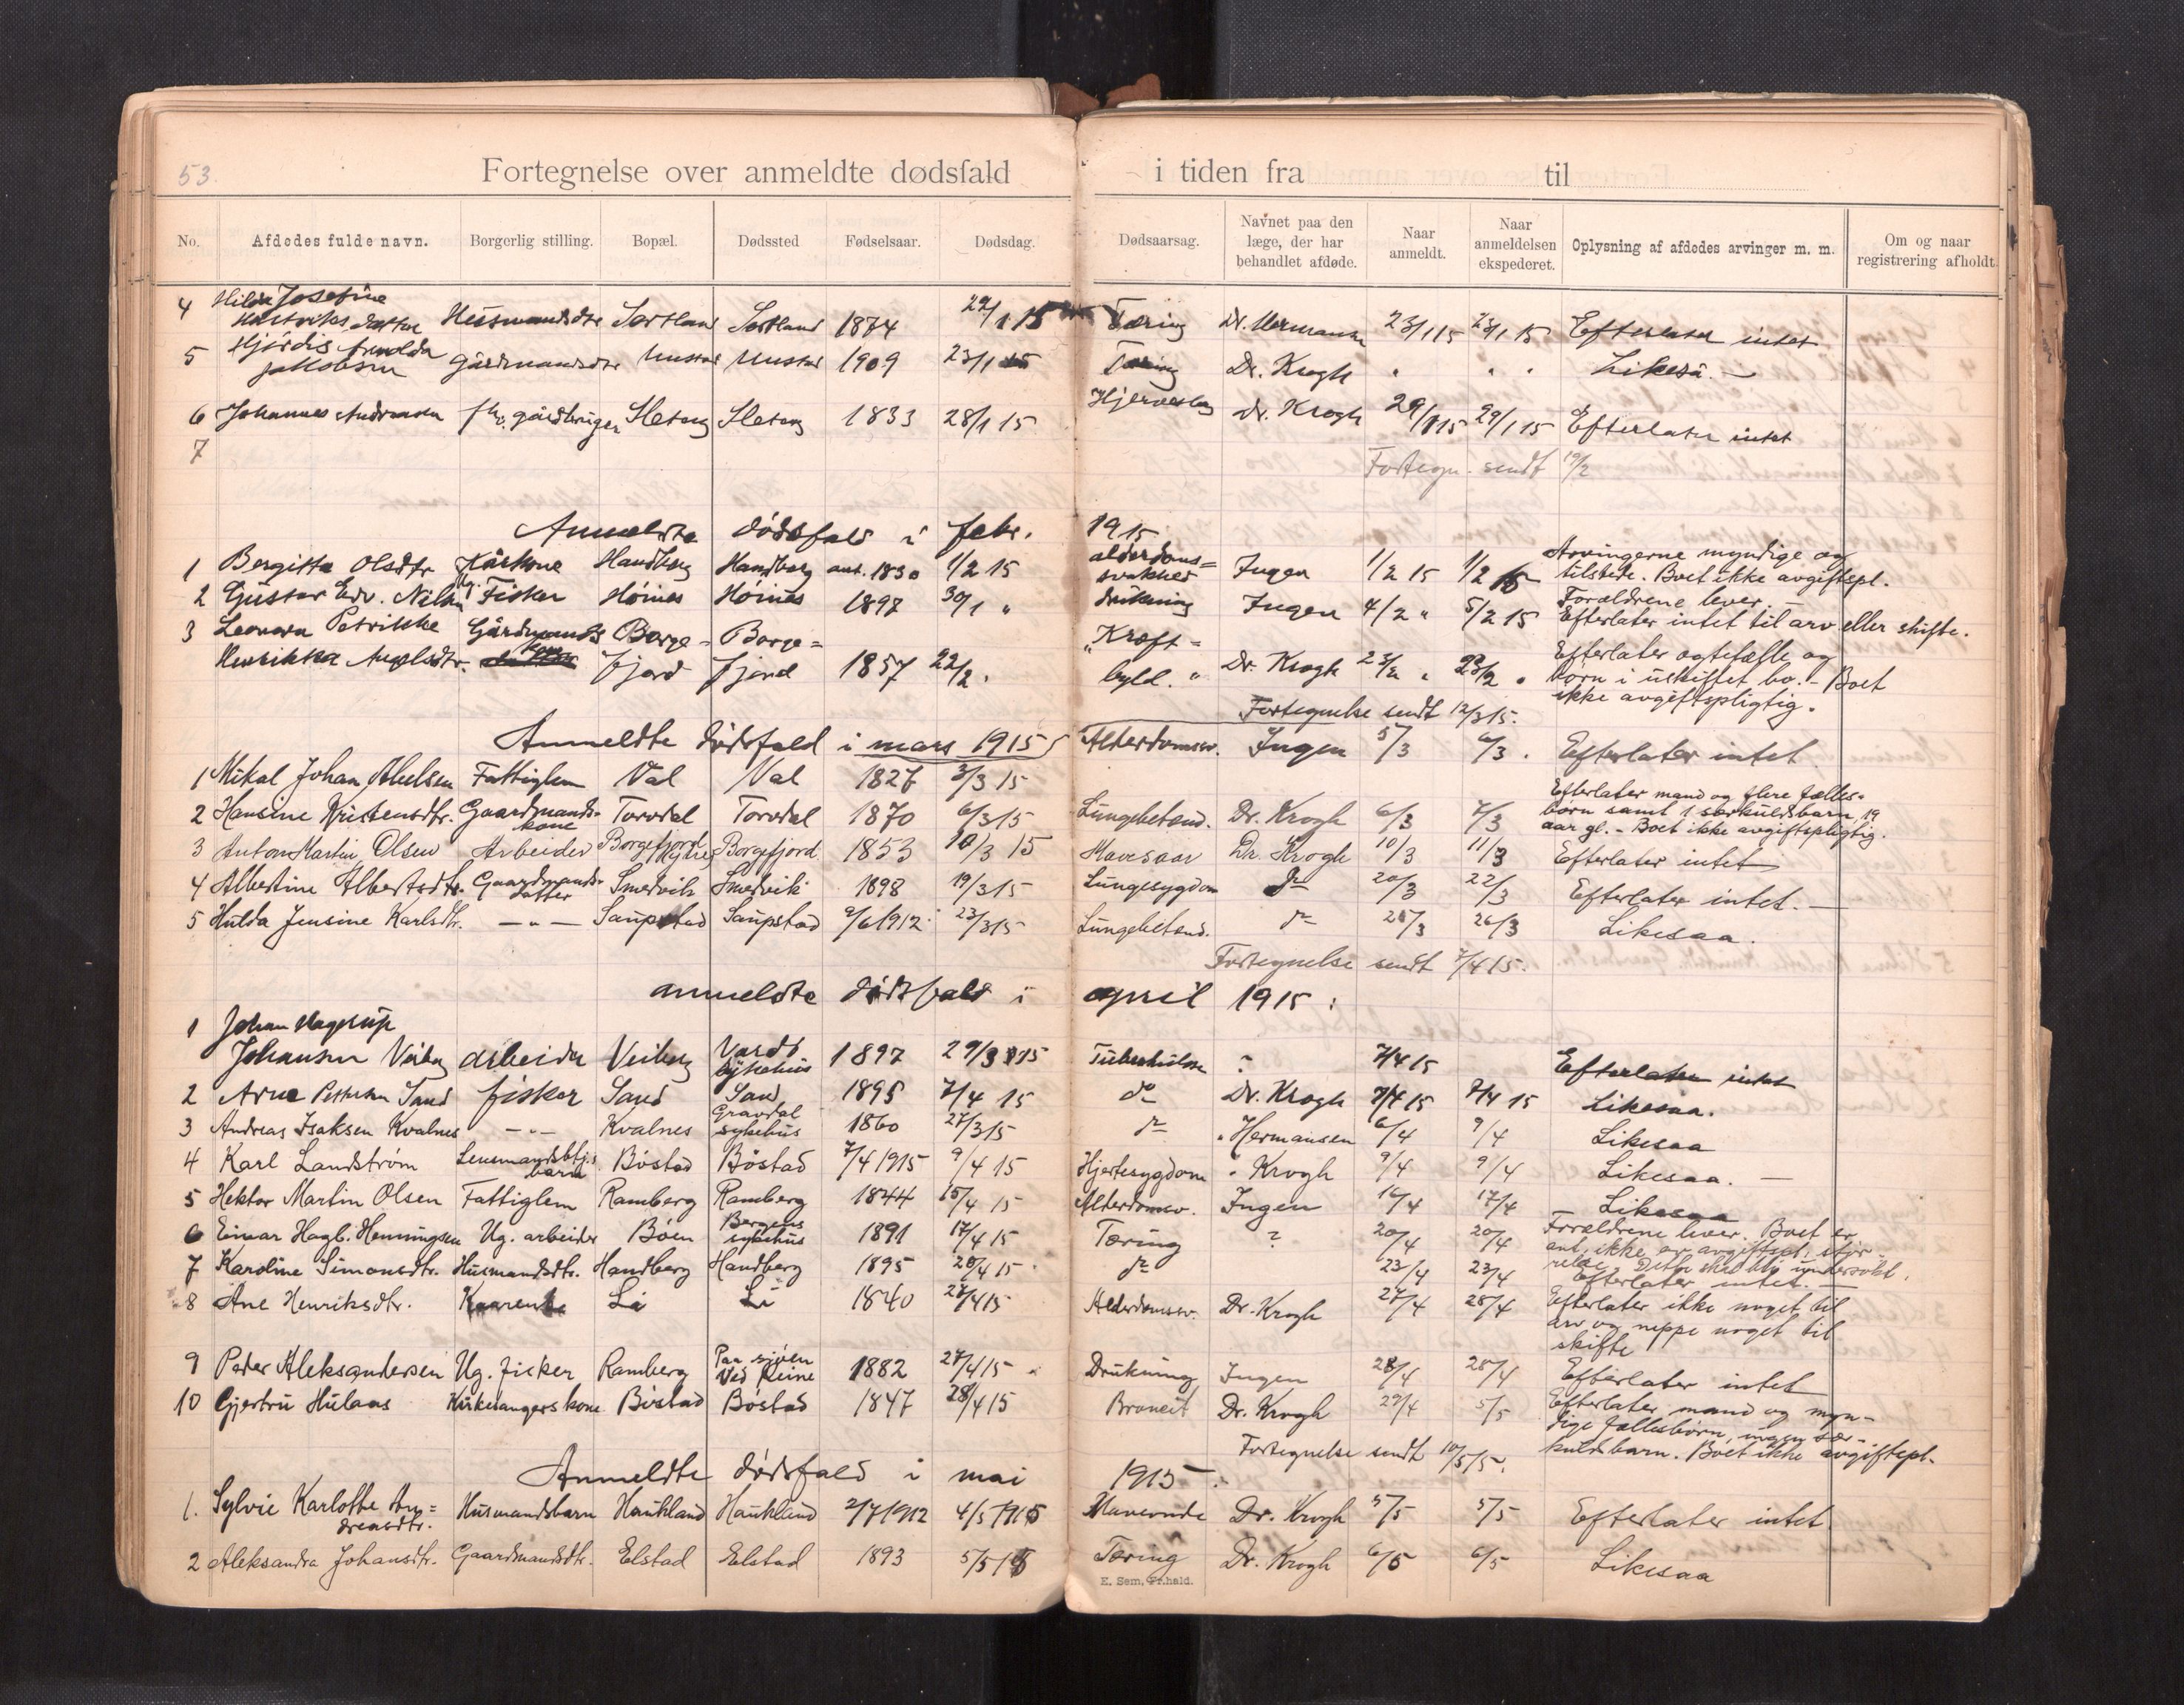 53.
Fortegnelse over anmeldte dødsfald i tiden fra til
No. Afdødes fulde navn. Borgerlig stilling. Bopæl. Dødssted Fødselsaar. Dødsdag. Dødsaarsag. Navnet paa den læge, der har behandlet afdøde. Naar anmeldt. Naar anmeldelsen ekspederet. Oplysning af afdødes arvinger m. m. Om og naar registrering afholdt.
4 Hilda Josefine Husmandsdtr Sortland Sortland 1874 22/1 15 Tæring Dr. 23/1 15 23/1 15 Efterlater intet
5 Hjørdis Jakobsen Gårdmandsdtr 1909 23/1 15 Tæring Dr. Krogh " " " Likeså. —
6 Johannes Andreassen fhv. gårdbruger 1833 28/1 15 Dr. Krogh 29/1 15 29/1 15 Efterlater intet
7
Fortegn. sendt 19/2
Anmeldte dødsfald i febr. 1915
1 Bergitte Olsdtr Kårkone Handberg Handberg ant. 1830 1/2 15 alderdoms= svakhed Ingen 1/2 15 1/2 15 Arvingerne myndige og tilstede. Boet ikke avgiftspl.
2 Gustav Edv. Nilsen Ug. Fisker Höines Höines 1897 30/1 " drukning Ingen 4/2 " 5/2 15 Forældrene lever. — Efterlater intet til arv eller skifte.
3 Leonora Petrikke Henrikka Gårdmands kone Borge= fjord Borge= fjord 1857 22/2 " "Kræft= byld. " Dr. Krogh 23/2 " 23/2 " Efterlater egtefælle og börn i uskiftet bo. - Boet ikke avgiftspligtig.
Fortegnelse sendt 12/3 15.
Anmeldte dödsfald i mars 1915
1 Mikal Johan Abelsen Fattiglem Val Val 1827 3/3 15 Alderdomssv. Ingen 5/3 6/3 . Efterlater intet.
2 Hansine Kristensdtr. Gaardmands- kone Torvdal Torvdal 1870 6/3 15 Lungebetænd. Dr. Krogh 6/3 7/3 Efterlater mand og flere fælles- börn samt 1 særkuldsbarn, 19 aar gl. - Boet ikke avgiftspligtig.
3 Anton Martin Olsen Arbeider Borgefjord Borgefjord 1853 10/3 15 Mavesaar Dr. Krogh 10/3 11/3 Efterlater intet
4 Albertine Albertsdtr. Gaardmands- datter Smedvik Smedvik 1898 19/3 15 Lungesygdom do 20/3 22/3 Efterlater intet. —
5 Hulda Jensine Karlsdtr. — " — Saupstad Saupstad 2/6 1912 23/3 15 Lungebetænd. do 25/3 26/3 Likesaa.
Fortegnelse sendt 7/4 15.
anmeldte dødsfald i april 1915 :
1 Johan Hagerup Johansen Veiberg arbeider Veiberg Vardö sykehus 1897 29/3 15 Tuberkulose ? 7/4 15 Efterlater intet
2 Arne Pettersen Sand fisker Sand Sand 1895 7/4 15 do Dr. Krogh 7/4 15 7/4 15 Likesaa.
3 Andreas Isaksen Kvalnes — " — Kvalnes Gravdal sykehus 1860 27/3 15 do " Hermansen 6/4 9/4 Likesaa
4 Karl Landström Lensmandsbtj.s barn Böstad Böstad 7/4 1915 9/4 15 Hjertesygdom " Krogh 9/4 9/4 Likesaa. —
5 Hektor Martin Olsen Fattiglem Ramberg Ramberg 1844 15/4 15 Alderdomssv. Ingen 16/4 17/4 Likesaa
6 Einar Hagb. Henningsen Ug. arbeider Böen Bergens sykehus 1891 17/4 15 Tæring ? 20/4 20/4 Forældrene lever. Boet er ant. ikke av avgiftspl. stör- relse. Dette skal bli undersökt.
7 Karoline Simonsdtr. Husmandsdtr. Handberg Handberg 1895 20/4 15 do 23/4 23/4 Efterlater intet. —
8 Ane Henriksdtr. Kaarenke Li Li 1840 27/4 15 Alderdomssv. Dr. Krogh 27/4 28/4 Efterlater ikke noget til arv og neppe noget til skifte
9 Peder Aleksandersen Ug. fisker Ramberg Paa sjöen ved Reine 1882 27/4 15 Drukning Ingen 28/4 28/4 Efterlater intet
10 Gjertru Hulaas Kirkesangers kone Böstad Böstad 1847 28/4 15 Dr. Krogh 29/4 5/5 Efterlater mand og myn- dige fællesbörn, ingen sær- kuldsbarn. Boet ikke avgiftspl.
Fortegnelse sendt 10/5 15.
Anmeldte dødsfald i mai 1915 .
1. Sylvie Karlotte An= dreasdtr. Husmandsbarn Haukland Haukland 2/7 1912 4/5 1915 Dr. Krogh 5/5 5/5 Efterlater intet
2 Aleksandra Johansdtr. Gaardmandsdtr. Elstad Elstad 1893 5/5 15 Tæring Dr. Krogh 6/5 6/5 Likesaa
E. Sem, Fr.hald.